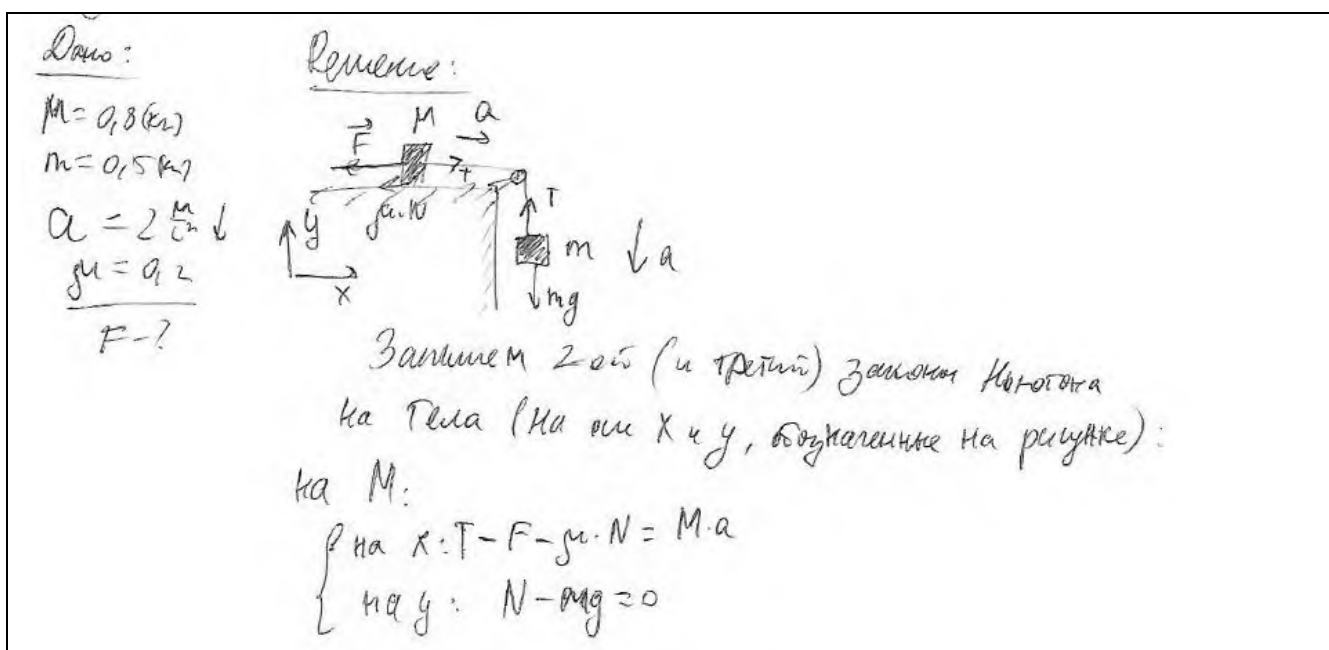 Дано:
M = 0,8 (кг)
m = 0,5 (кг)
a = 2 м/с² ↓
μ = 0,2
F - ?
Решение:
F M a
T
μ·N
y
x
T
m ↓ a
mg
Запишем 2ой (и третий) законы Ньютона
на тела (на оси X и y, обозначенные на рисунке):
на M:
на x: T - F - μ·N = M·a
на y: N - Mg = 0